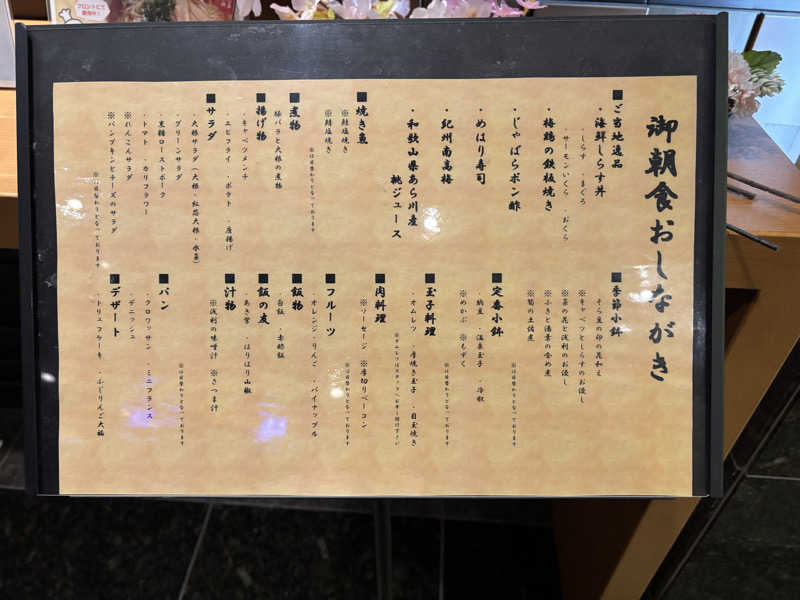 御朝食おしながき
■ご当地逸品
・海鮮しらす丼
・しらす ・まぐろ
・サーモンいくら ・おくら
・梅鶏の鉄板焼き
・じゃばらポン酢
・めはり寿司
・紀州南高梅
・和歌山県あら川産
桃ジュース
■焼き魚
※鯖塩焼き
※鮭塩焼き
※は日替わりとなっております
■煮物
豚バラと大根の煮物
■揚げ物
・キャベツメンチ
・エビフライ ・ポテト ・唐揚げ
■サラダ
・大根サラダ(大根・紅芯大根・水菜)
・グリーンサラダ
・黒糖ローストポーク
・トマト ・カリフラワー
※れんこんサラダ
※パンプキンとチーズのサラダ
※は日替わりとなっております
■季節小鉢
そら豆の卯の花和え
※キャベツとしらすのお浸し
※菜の花と浅利のお浸し
※ふきと湯葉の含め煮
※筍の土佐煮
※は日替わりとなっております
■定番小鉢
・納豆 ・温泉玉子 ・冷奴
※めかぶ ※もずく
※は日替わりとなっております
■玉子料理
・オムレツ ・厚焼き玉子 ・目玉焼き
※オムレツはスタッフへお申し付け下さい
■肉料理
※ソーセージ ※厚切りベーコン
※は日替わりとなっております
■フルーツ
・オレンジ・りんご ・パイナップル
■飯物
・白飯 ・赤酢飯
■飯の友
・あさ紫 ・はりはり山椒
■汁物
※浅利の味噌汁 ※さつま汁
※は日替わりとなっております
■パン
・クロワッサン ・ミニフランス
・デニッシュ
■デザート
・トリュフケーキ ・ふじりんご大福